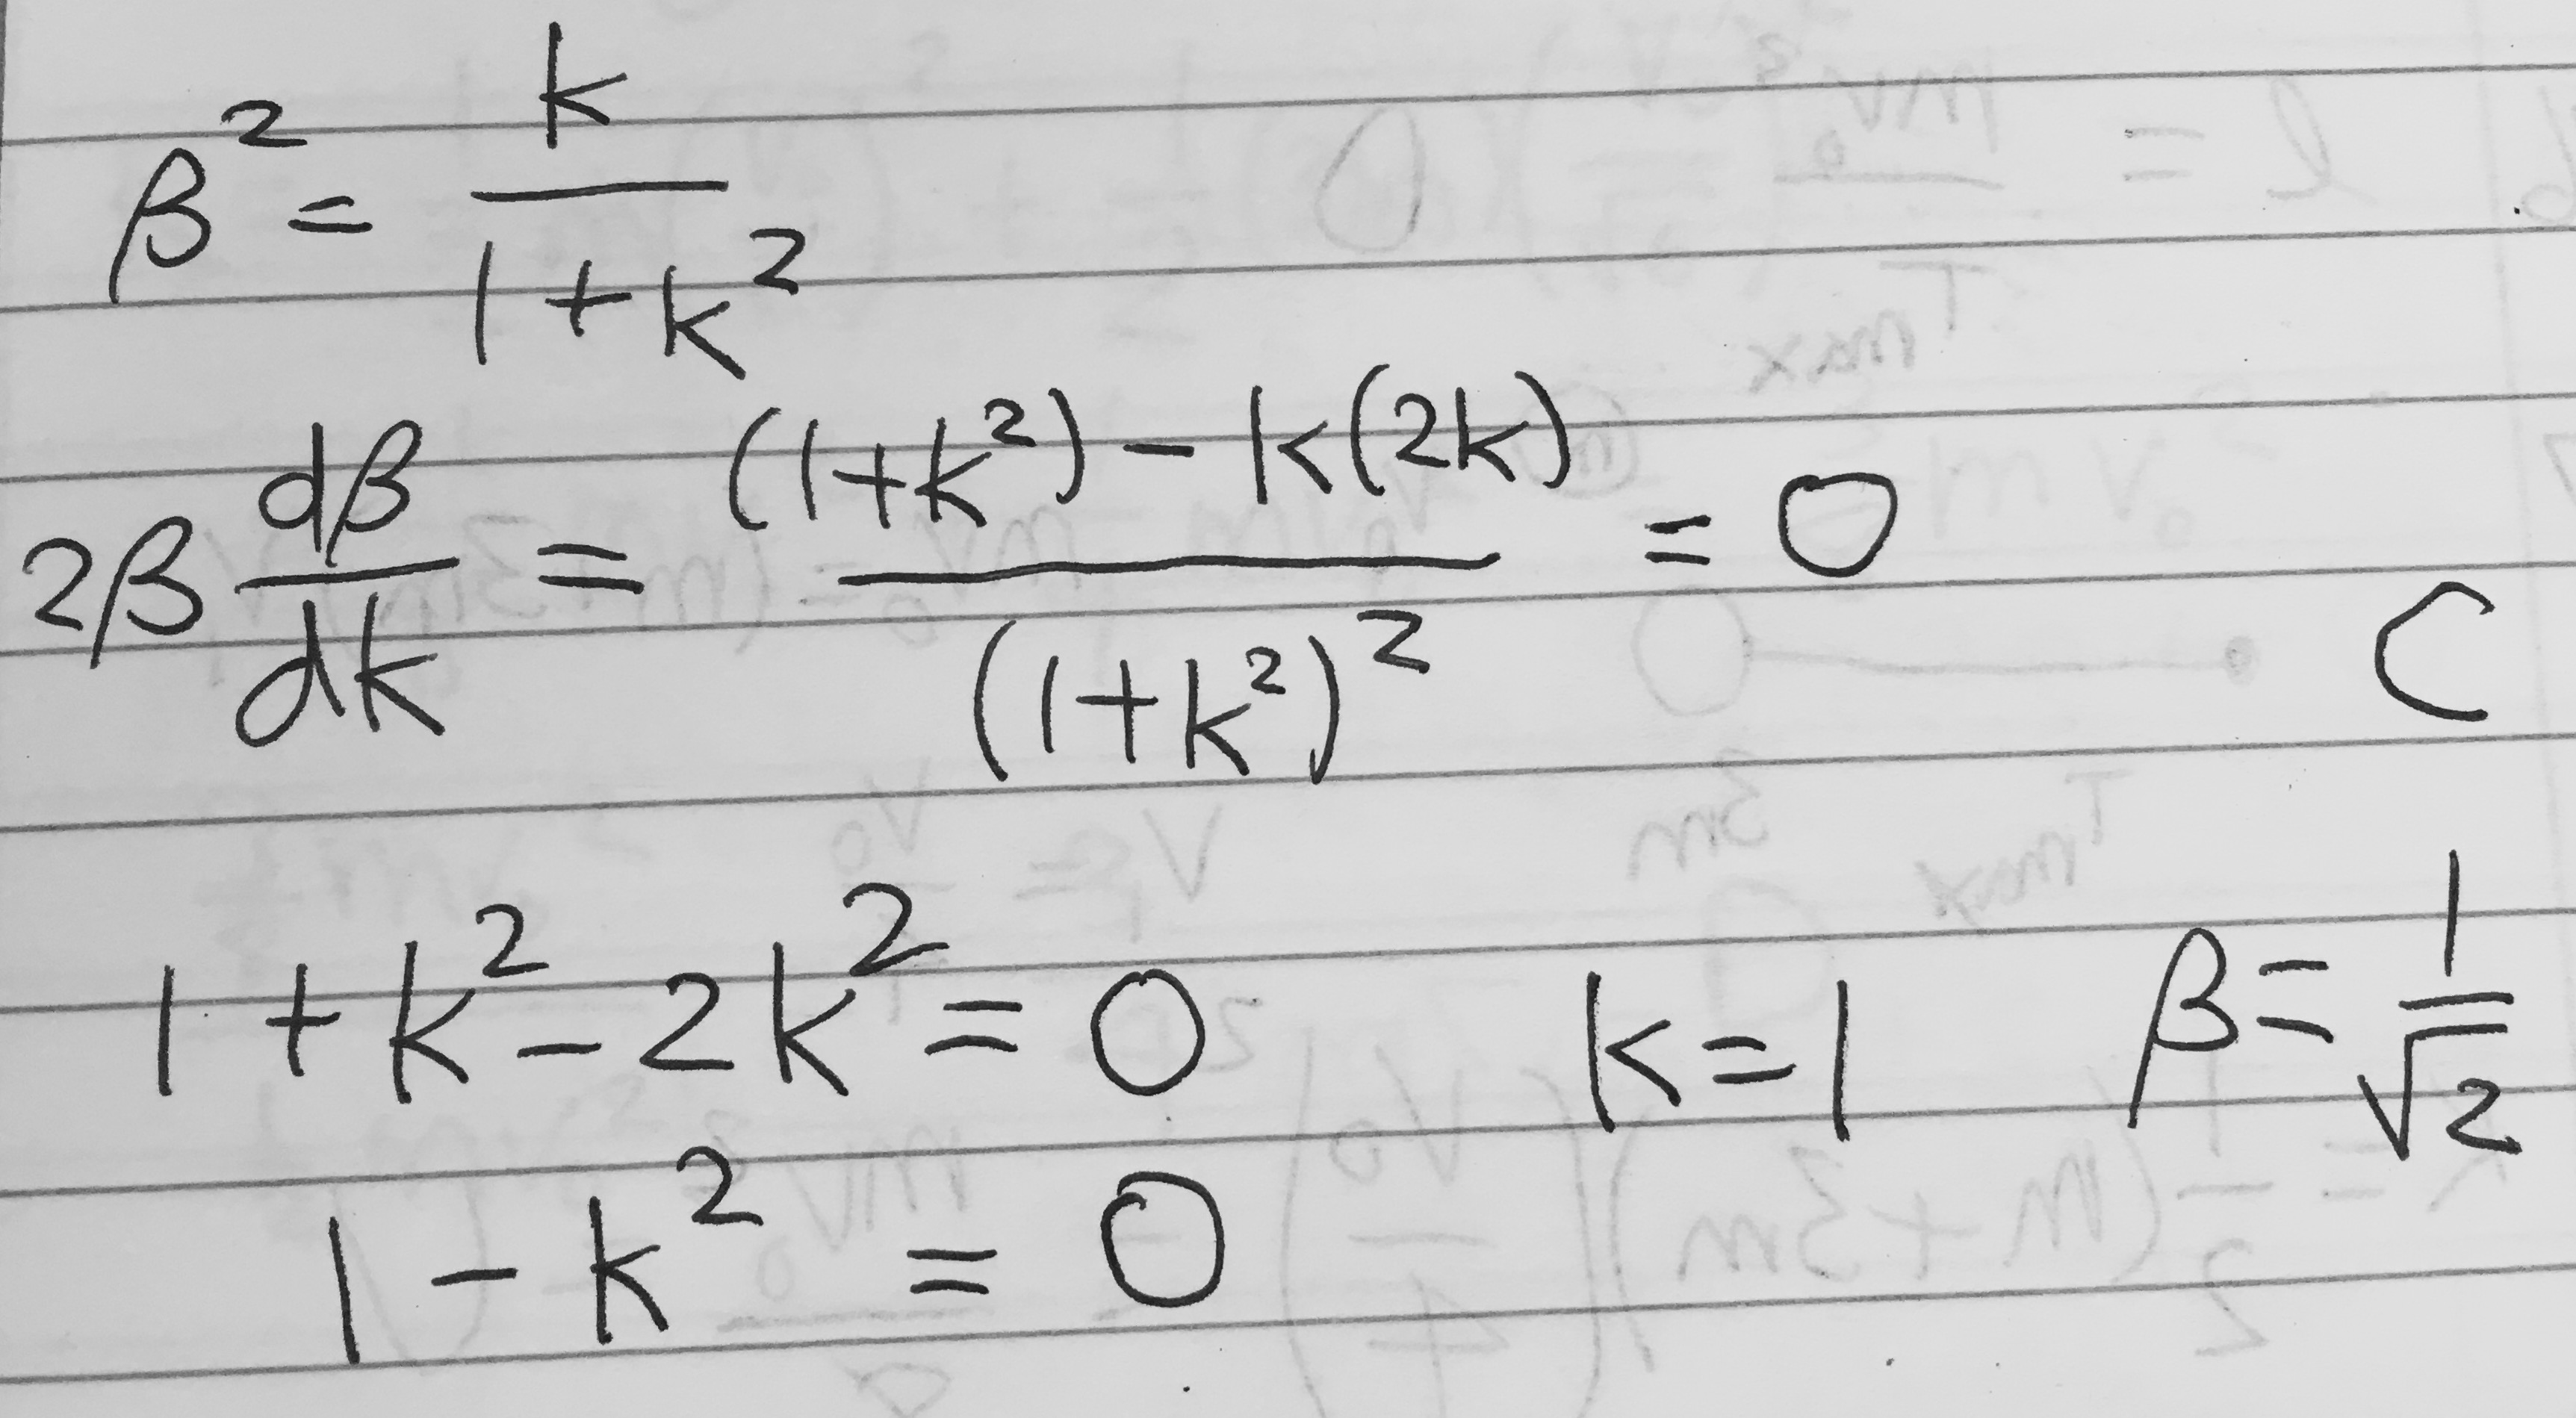 β² = k / (1+k²)
2β dβ/dk = ((1+k²) - k(2k)) / (1+k²)² = 0
C
1 + k² - 2k² = 0 k=1 β = 1/√2
1 - k² = 0